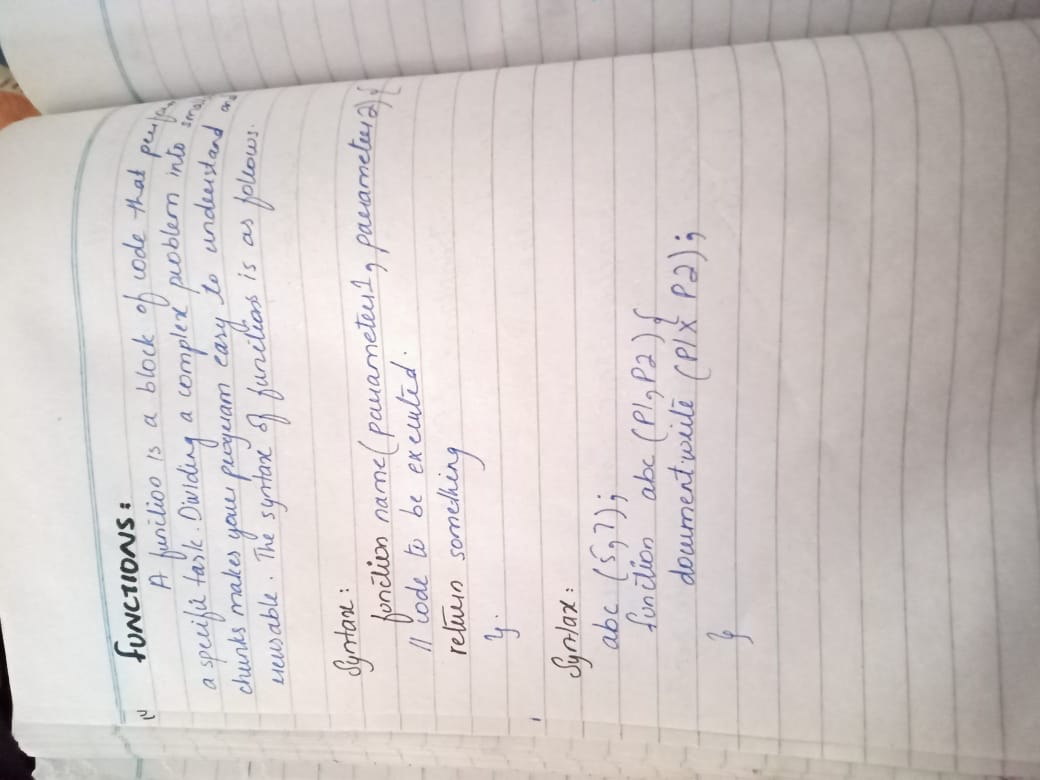 FUNCTIONS:
A function is a block of code that
a specific task. Dividing a complex problem into
chunks makes your program easy to understand and
reusable. The syntax of functions is as follows.
Syntax:
function name(parameter1, parameter2){
// code to be executed.
return something
}.
Syntax:
abc (5,7);
function abc (P1, P2){
document.write (P1 x P2);
}